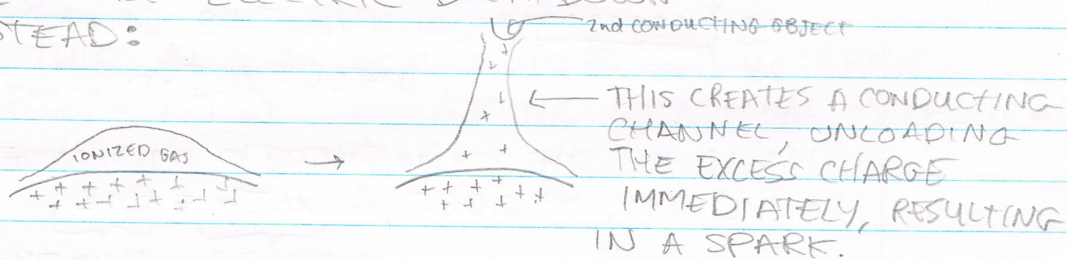 STEAD:
2nd CONDUCTING OBJECT
THIS CREATES A CONDUCTING
CHANNEL, UNLOADING
THE EXCESS CHARGE
IMMEDIATELY, RESULTING
IN A SPARK.
IONIZED GAS